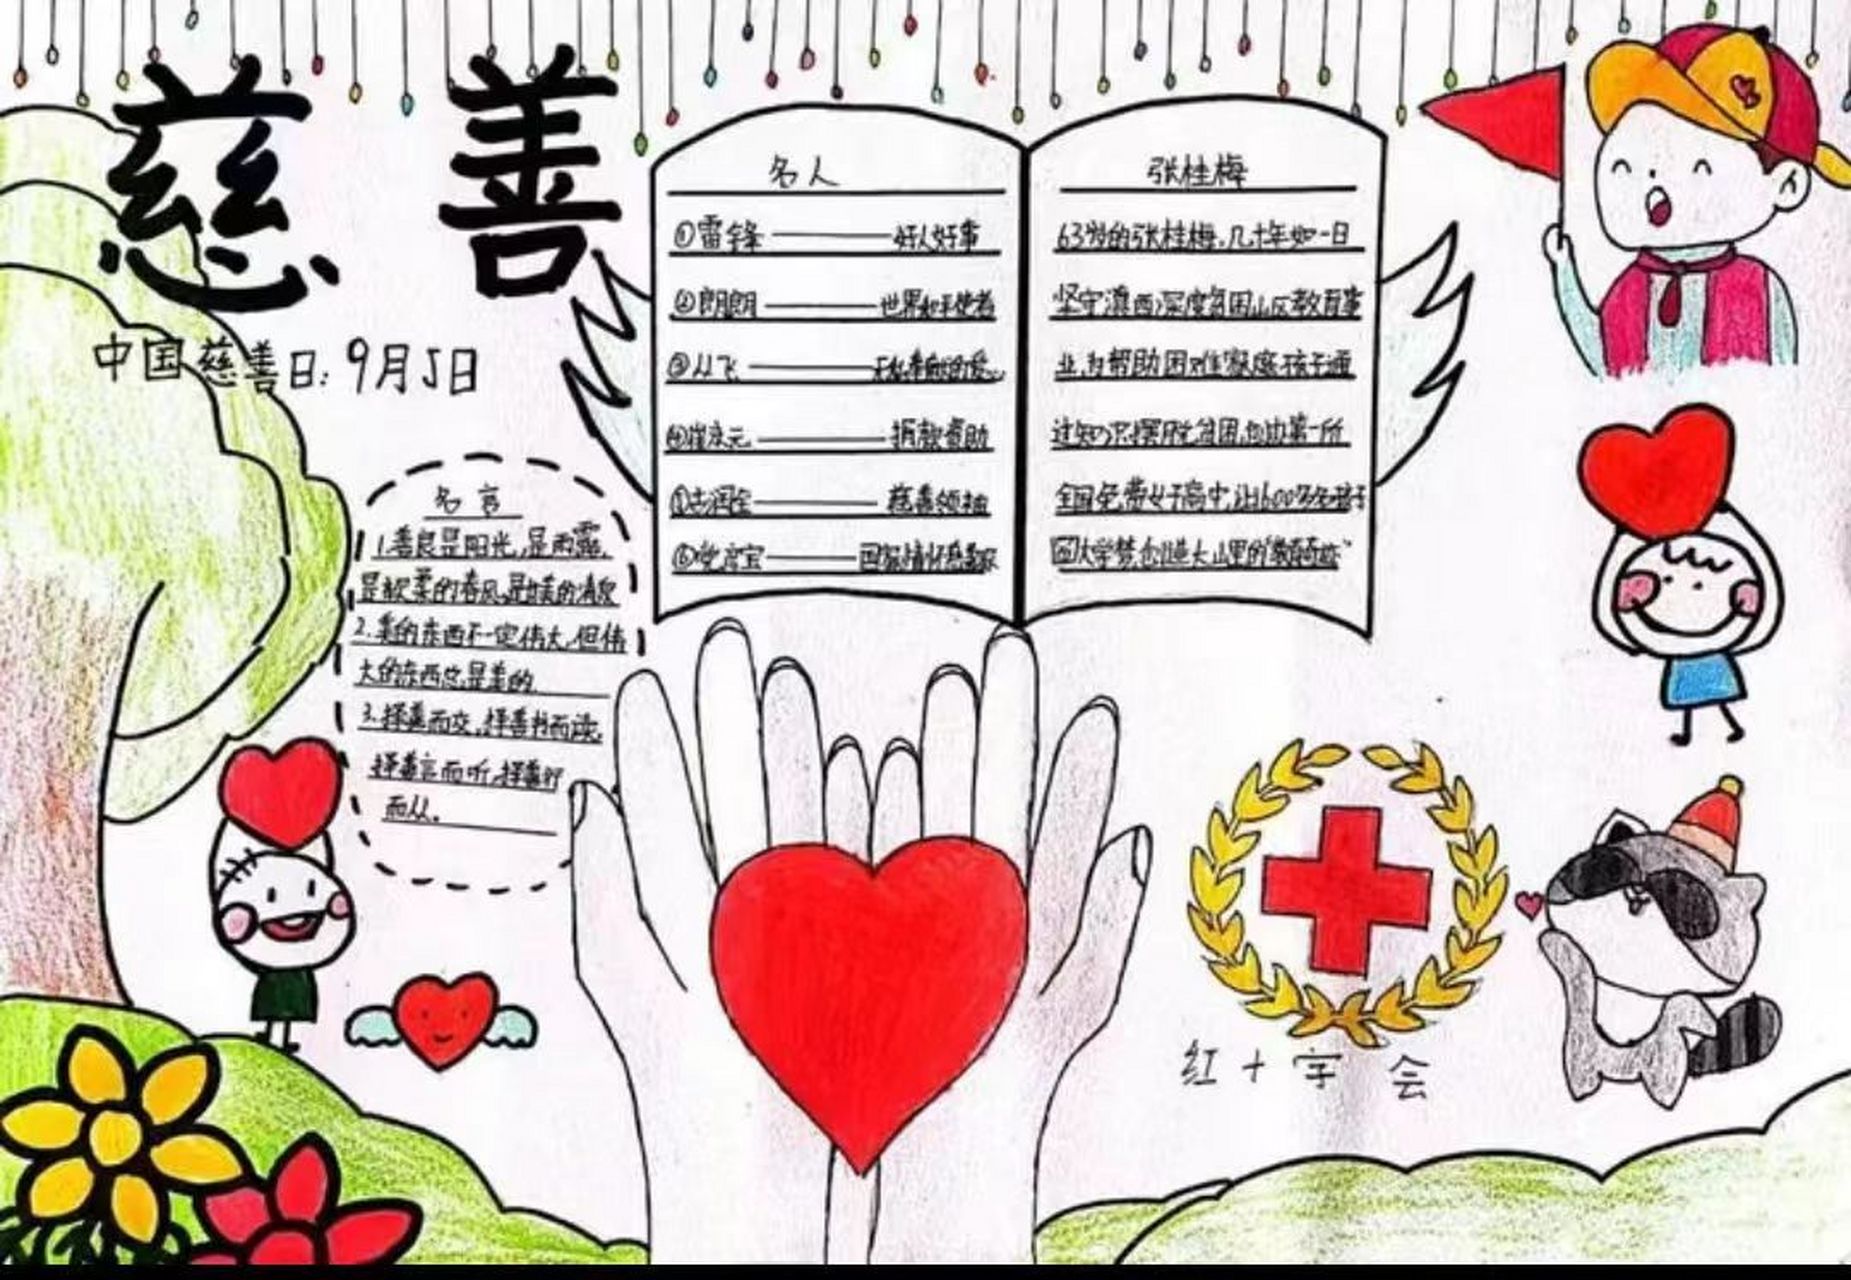 慈 善
中国慈善日:9月5日
名言
1.善良是阳光,是雨露,
是轻柔的春风,是甘美的清泉
2.美的东西不一定伟大,但伟
大的东西总是美的.
3.择善而交,择善书而读,
择善言而听,择善行
而从。
名人
①雷锋——好人好事
②朗朗——世界和平使者
③丛飞
④崔永元——捐款资助
慈善领袖
张桂梅
63岁的张桂梅,几十年如一日
坚守滇西深度贫困山区教育事
业,为帮助困难家庭孩子通
过知识摆脱贫困,创办第一所
全国免费女子高中,让1600多名孩子
圆大学梦,创造大山里的"教育奇迹"
红十字会